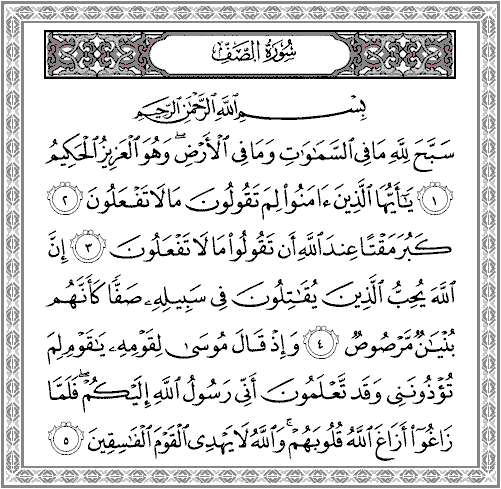 سُورَةُ الصَّفِّ
بِسْمِ اللَّهِ الرَّحْمَٰنِ الرَّحِيمِ
سَبَّحَ لِلَّهِ مَا فِي السَّمَٰوَٰتِ وَمَا فِي الْأَرْضِ ۖ وَهُوَ الْعَزِيزُ الْحَكِيمُ
١ يَٰٓأَيُّهَا الَّذِينَ ءَامَنُوا۟ لِمَ تَقُولُونَ مَا لَا تَفْعَلُونَ ٢
كَبُرَ مَقْتًا عِندَ اللَّهِ أَن تَقُولُوا۟ مَا لَا تَفْعَلُونَ ٣ إِنَّ
اللَّهَ يُحِبُّ الَّذِينَ يُقَٰتِلُونَ فِي سَبِيلِهِۦ صَفًّا كَأَنَّهُم
بُنْيَٰنٌ مَّرْصُوصٌ ٤ وَإِذْ قَالَ مُوسَىٰ لِقَوْمِهِۦ يَٰقَوْمِ لِمَ
تُؤْذُونَنِي وَقَد تَّعْلَمُونَ أَنِّي رَسُولُ اللَّهِ إِلَيْكُمْ ۖ فَلَمَّا
زَاغُوٓا۟ أَزَاغَ اللَّهُ قُلُوبَهُمْ ۚ وَاللَّهُ لَا يَهْدِي الْقَوْمَ الْفَٰسِقِينَ ٥